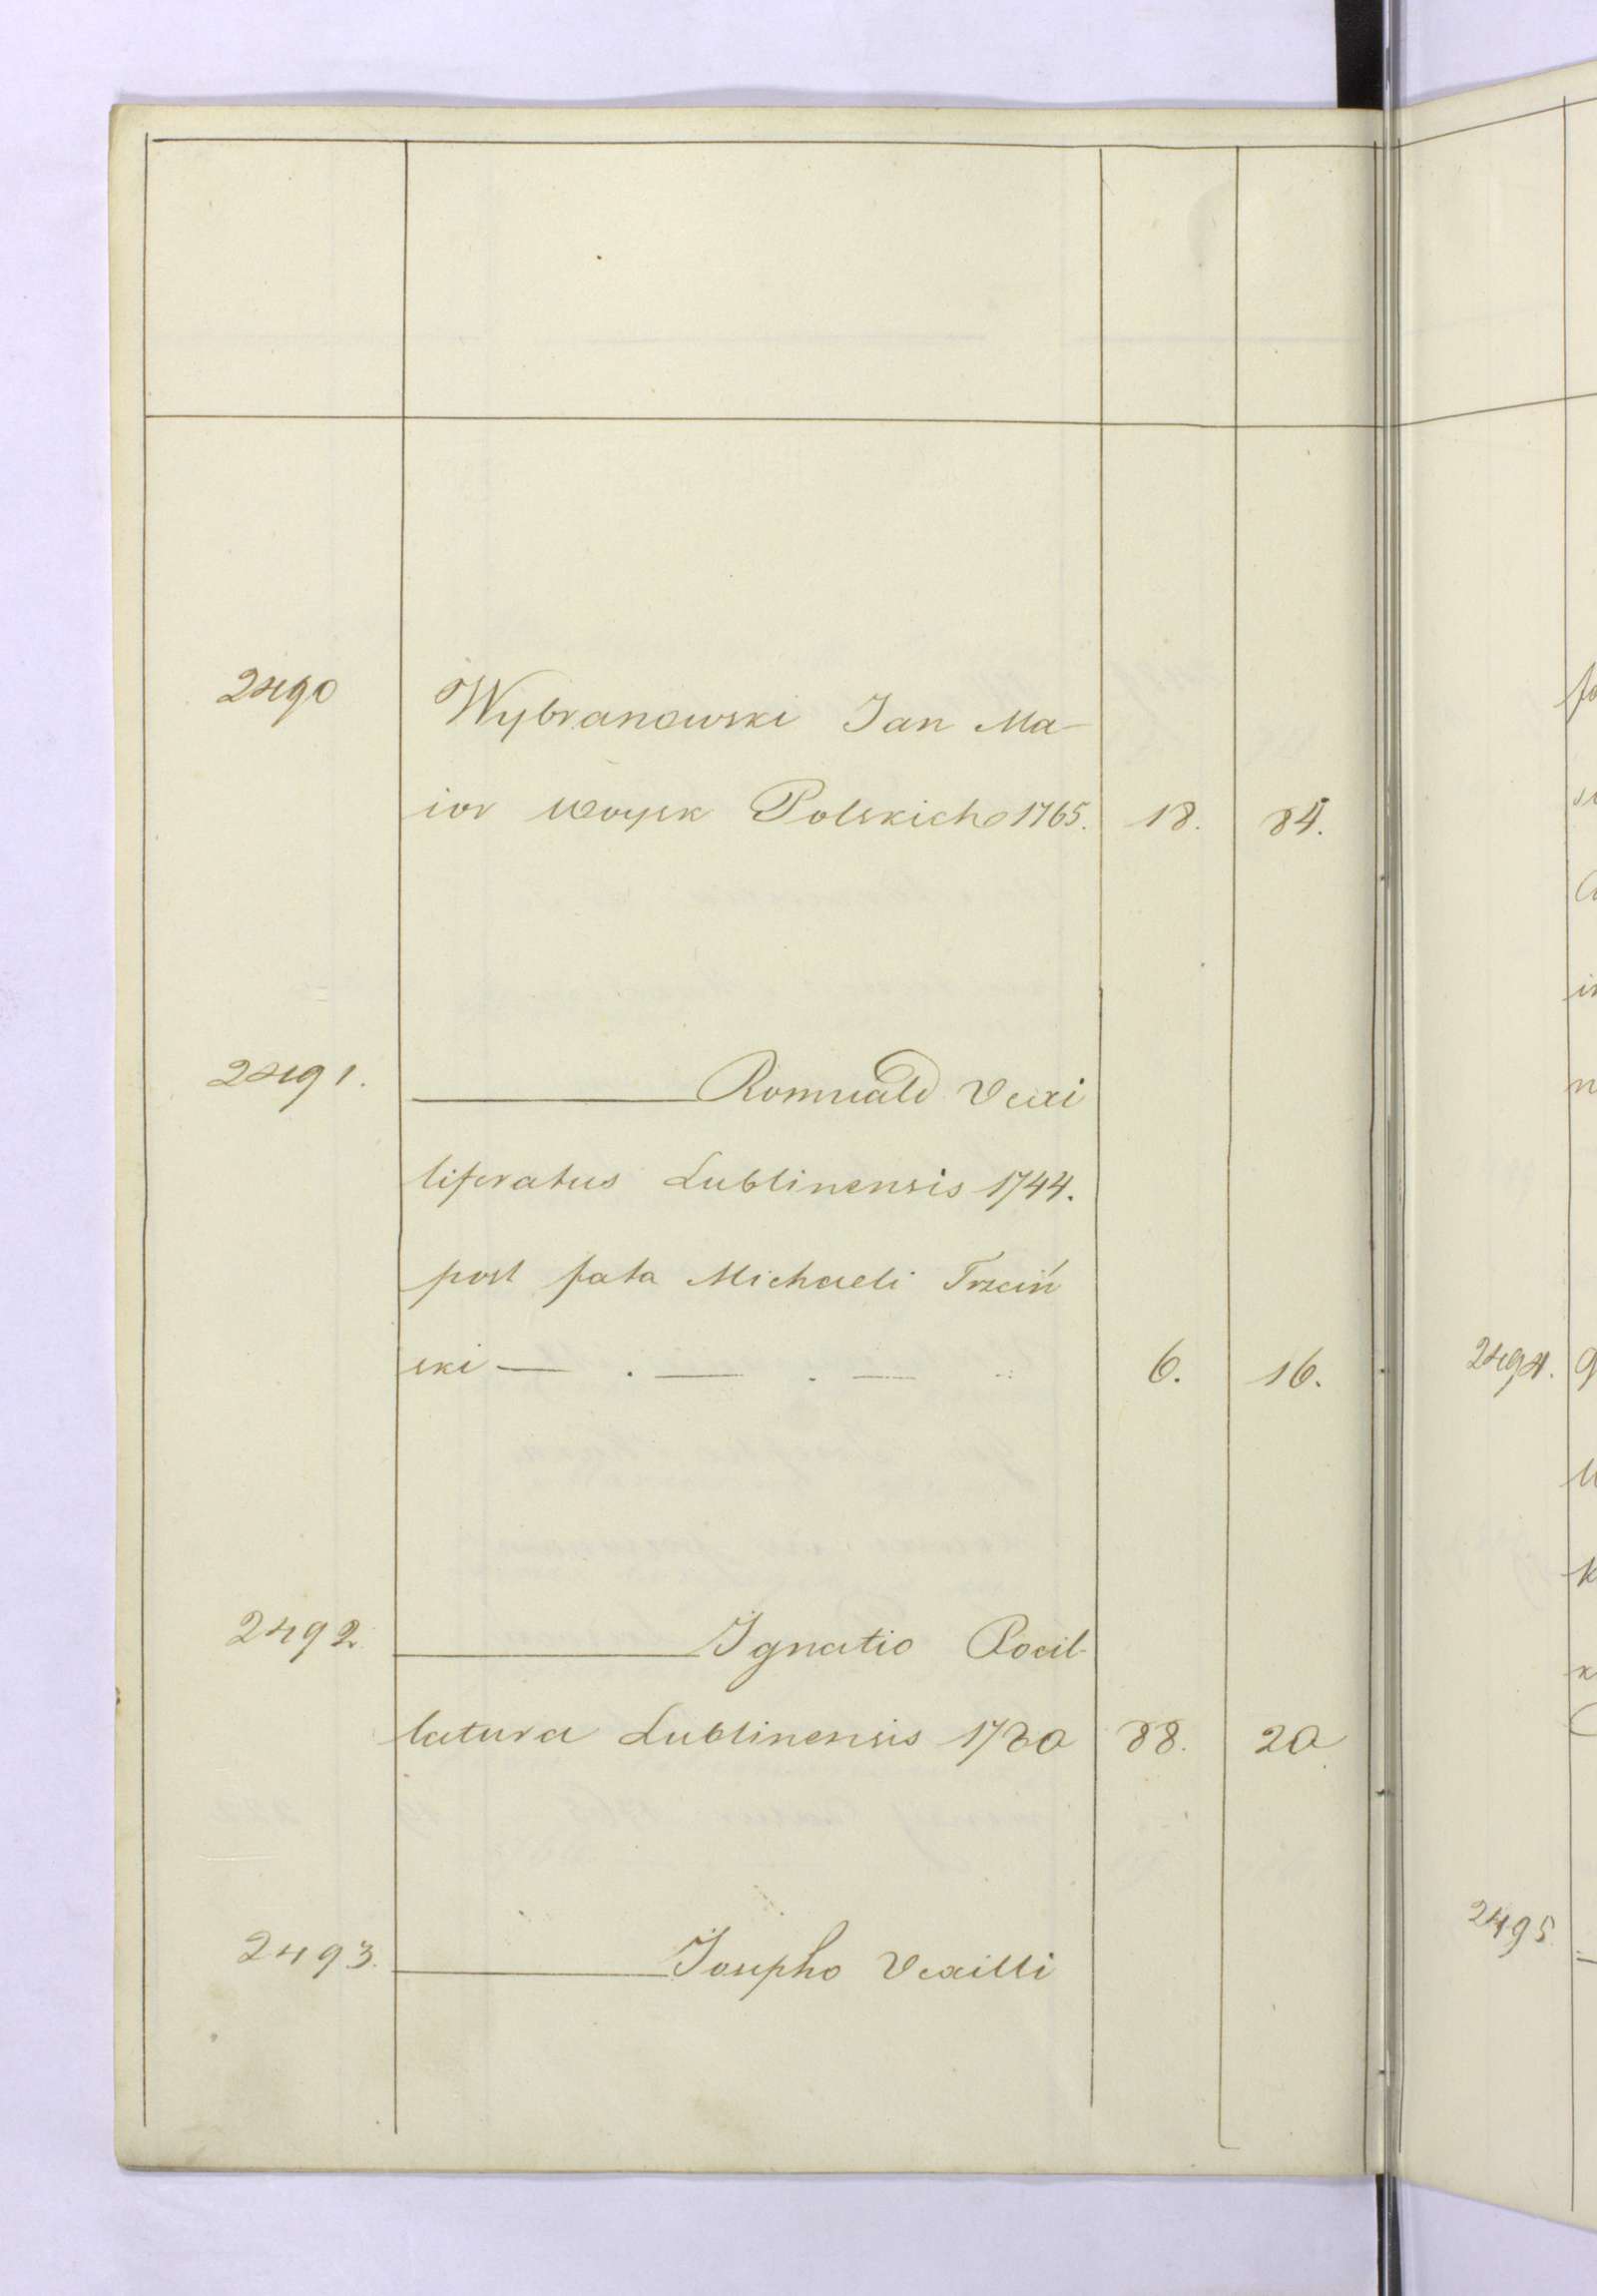 2490 Wybranowski Jan Ma-
ior woysk Polskich 1765. 18. 84.
2491. Romuald Vexi
liferatus Lublinensis 1744.
post fata Michaeli Trzciń
ski — . — . — 6. 16.
2492. Ignatio Pocil-
latura Lublinensis 1780 88. 20.
2493. Josepho Vexilli
2494.
2495.